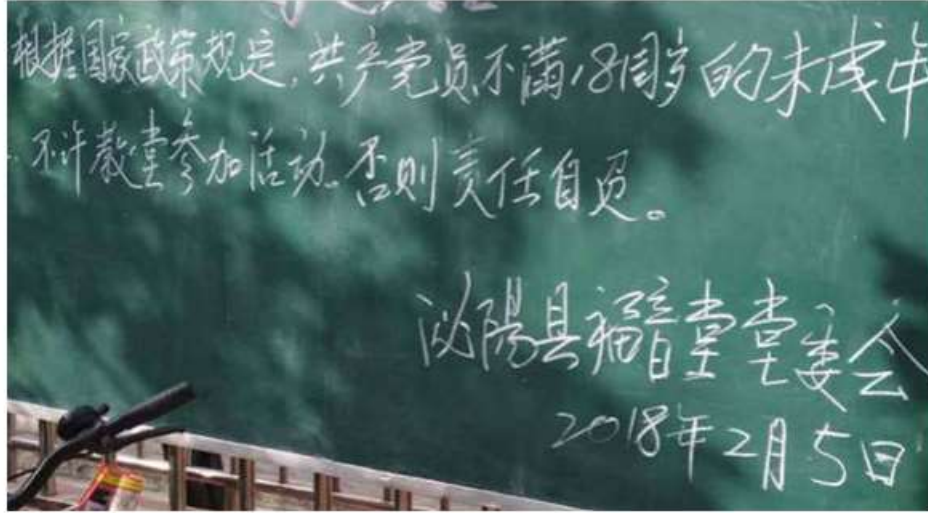 根据国家政策规定,共产党员不满18周岁的未成年
不许教堂参加活动.否则责任自负。
泌陽县福音堂堂委会
2018年2月5日